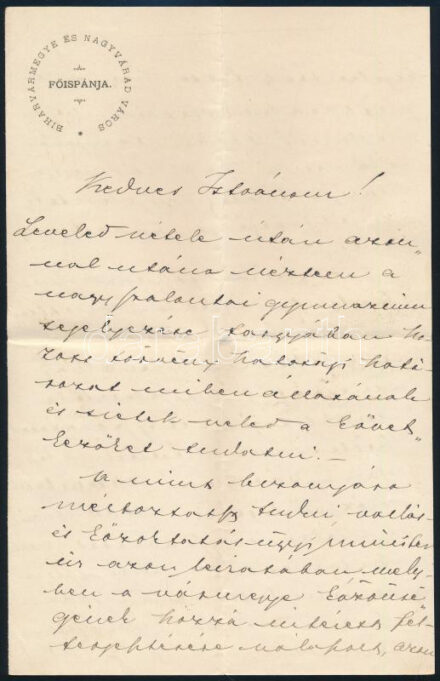 BIHARVÁRMEGYE ÉS NAGYVÁRAD VÁROS
FŐISPÁNJA.
Kedves Istvánom!
Leveled vétele után azon„
nal utána néztem a
nagyszalontai gymnasium
segélyezése tárgyában ho„
zott törvényhatósági hatá„
rozat miben állásának
és sietek neked a követ„
kezőket tudatni. –
A mint bizonyára
méltóztatsz tudni, vallás
és közoktatásügyi minister
úr azon leiratában mely„
ben a vármegye közönsé
gének hozzá intézett föl„
terjesztésére válaszolt, azon